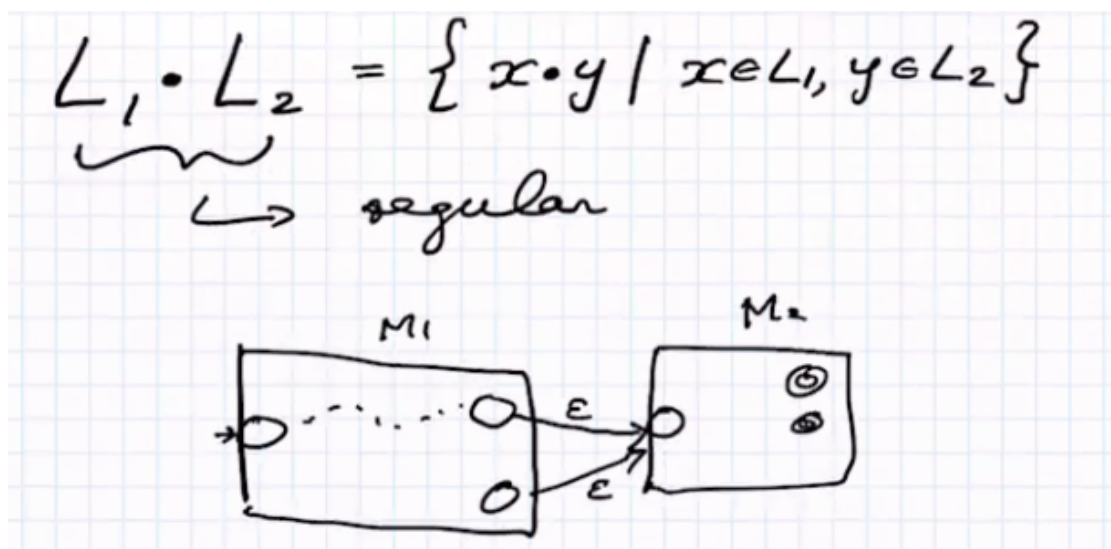 L₁ • L₂ = { x•y | x∈L₁, y∈L₂ }
↳ regular
M₁ M₂
ε
ε